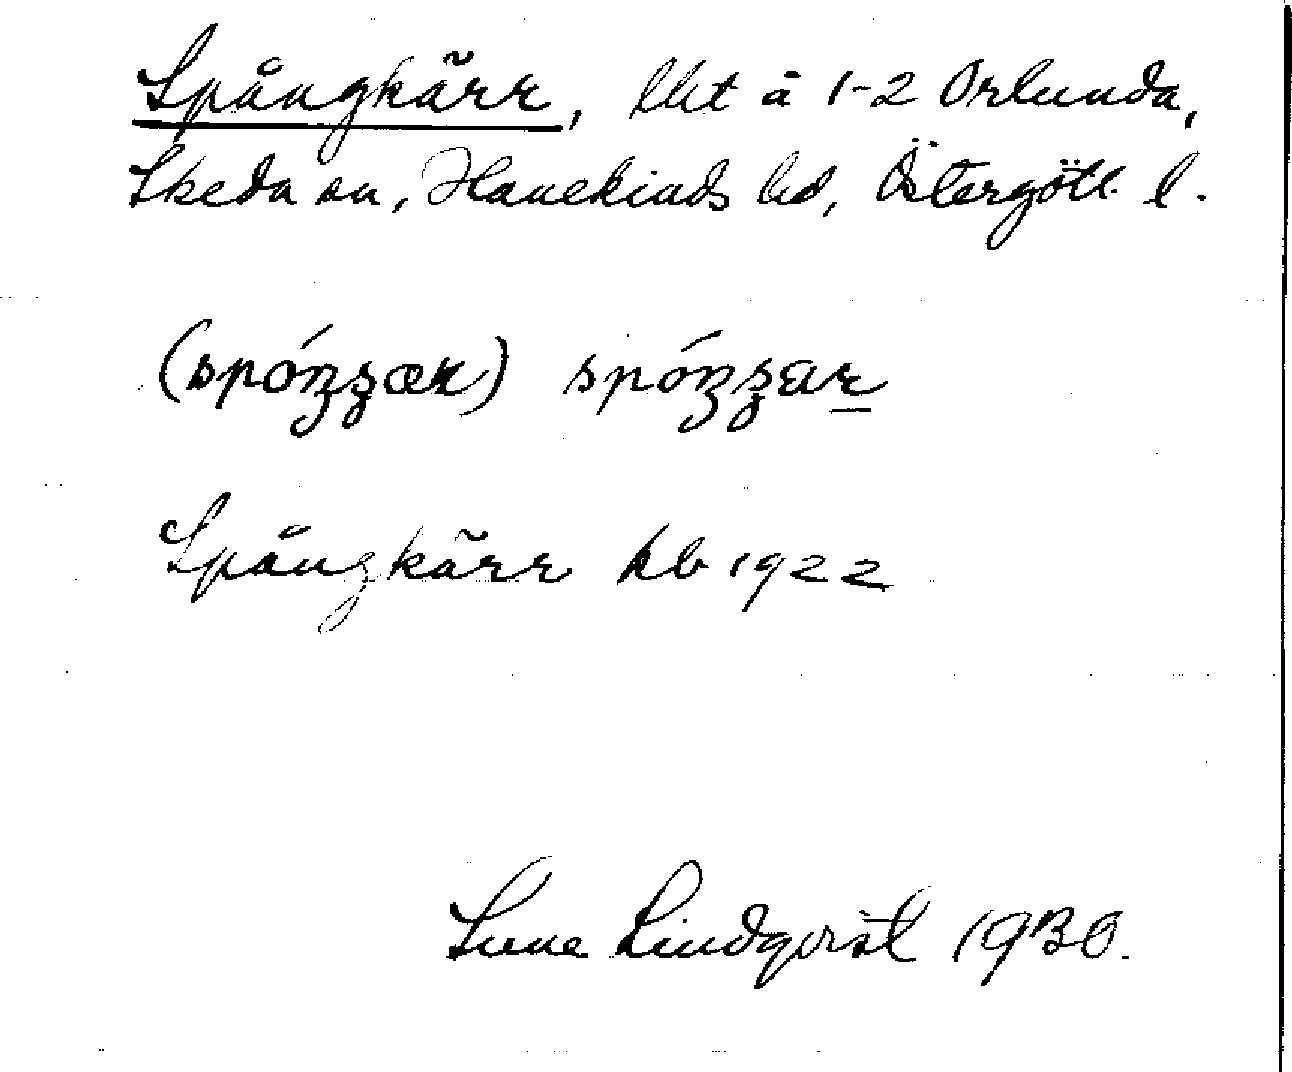 Spångkärr, lht å 1-2 Orlunda,
Skeda sn, Hanekinds hd, Östergötl. l.
Spångkärr hb 1922
Sune Lindqvist 1930.